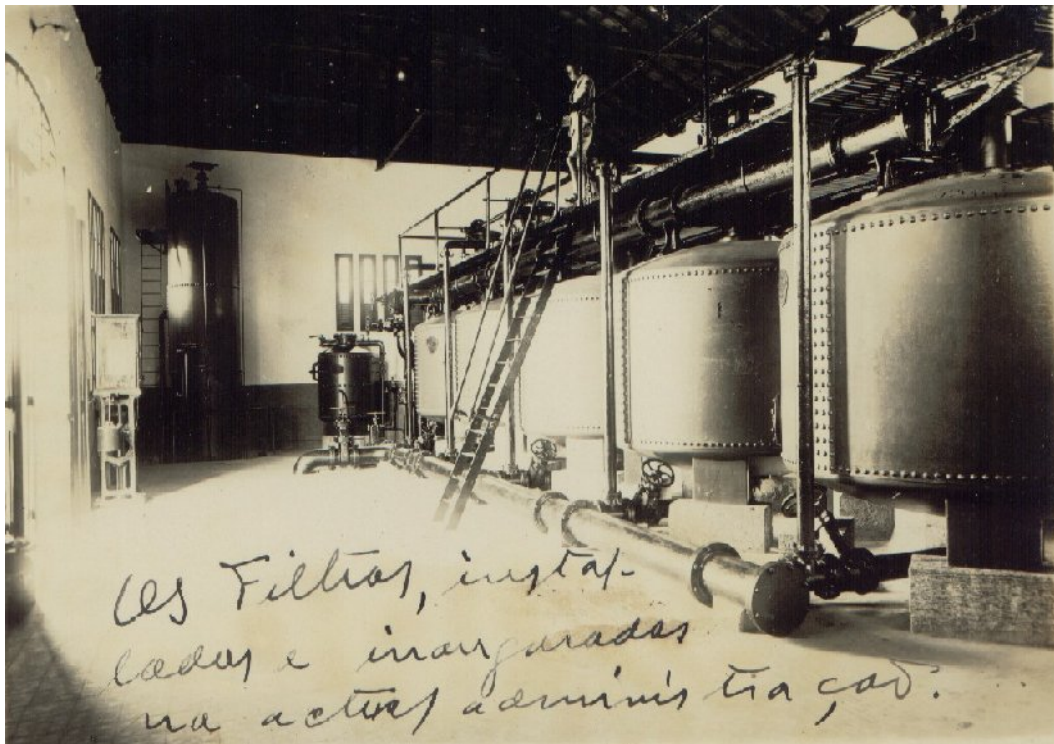 Os Filtros, instal-
lados e inaugurados
na actual administração.